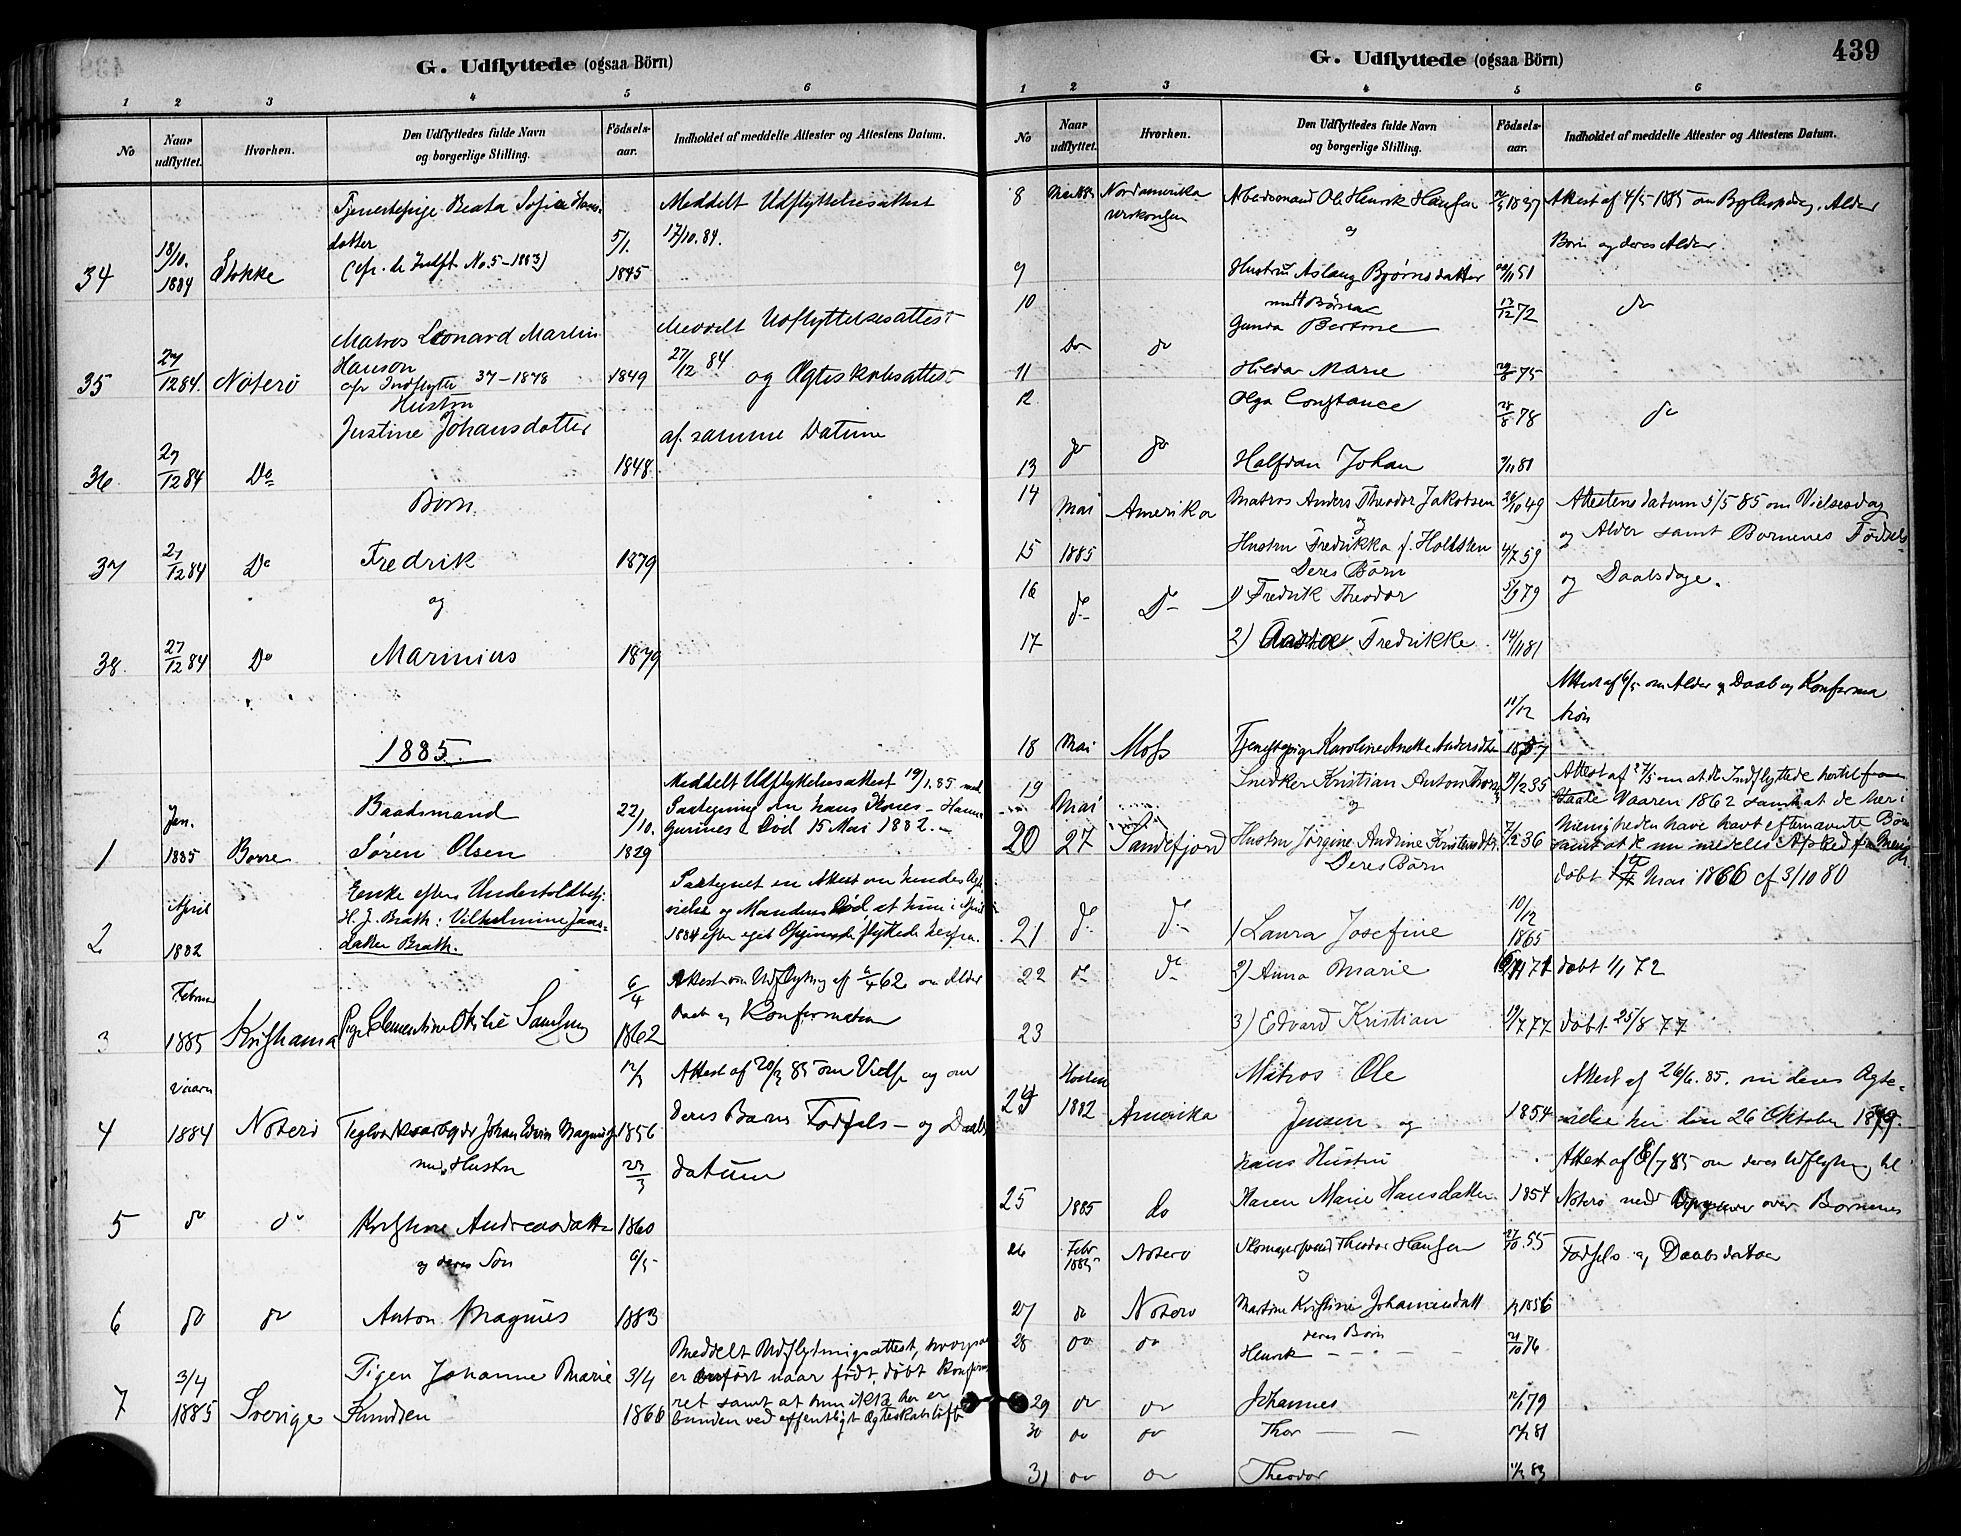 G. Udflyttede (ogsaa Börn)
1 2 3 4 5 6
No
Naar udflyttet.
Hvorhen.
Den Udflyttedes fulde Navn og borgerlige Stilling.
Födsels-aar.
Indholdet af meddelte Attester og Attestens Datum.
Tjenestepige Beata Sofie Hans- Meddelt Udflyttelsesattest
18/10. datter 5/1. 17/10. 84.
34 1884 Stokke (cfr. de Indfl. No. 5-1883) 1845
Matros Leonard Martin Meddelt Udflyttelsesattest
27 Hanson 27/12 84
35 1284. Nøterø cfr Indflytte 37-1878 1849 og Ægteskabsattest
Hustru
Justine Johansdatter af samme Datum
36 27/12 84 Do 1848.
Børn
37 27/12 84 Do Fredrik 1879
og
38. 27/12 84 Do Marinius 1879
1885.
Meddelt Udflyttelsesattest 19/1.85 med
Jan. Baadsmand 22/10. Paategning om hans Kones - Hanna
Død 15 Mai 1882.
1 1885 Borre Søren Olsen 1829
April Enke efter Undertoldbetj.
H. J. Brath: Vilhelmine Jans-
2 1882 datter Brath. 1884 efter eget Opgivende flyttede herfra.
Februar 6/4 Attest om Udflytning af om Alder
Daab og Konfirmation
3 1885 Kristiania Pige Clementine Otilie 1862
Vaaren Attest af 85 om Vielse og om
4 1884 Nøterø Teglværksarbeider Johan Edvin 1856 Deres Barns Fødsels- og Daabs
med Hustru 23/3 datum
5 do do Kristine Andreasdatter 1860
og deres Søn
6 do do Anton Magnus 1883
Meddelt Udflytningsattest, hvorpaa
3/4 Pigen Johanne Marie 3/4 er anført naar født, døbt konfirme
ret samt at hun ikke her er
7 1885 Sverige Knudsen 1860 bunden ved offentligt Ægteskabsløfte
G. Udflyttede (ogsaa Börn) 439
1 2 3 4 5 6
No
Naar udflyttet.
Hvorhen.
Den Udflyttedes fulde Navn og borgerlige Stilling.
Födsels-aar.
Indholdet af meddelte Attester og Attestens Datum.
8 Nordamerika Arbeidsmand Ole Henrik Hansen 1837 Attest af 4/5 1885 om Alder
og Børn og deres Alder.
9 Hustru Aslaug Bjørnsdatter 51
med Børn
10 Gunda Bertine 13/12 72 do
Do do
11 Hilda Marie 75
12 Olga Constance 28/8 78 do
13 do do Halfdan Johan 81
14 Mai Amerika Matros Anders Theodor Jakobsen 10 49 Attestens datum 5/5 85 om Vielsesdag
og og Alder samt Børnenes Fødsels
15 1885 Hustru Fredrikka f. Holtsten 4/7 59
Deres Børn og Daabsdage.
16 do Do 1) Fredrik Theodor 5/9 79
17 2) Fredrikke 14/11 81
Attest af 6/5 om Alder og Daab og Konfirma
11/12 tion
18 Mai Moss Tjenestepige Karoline Anette
19 Snedker Kristian Anton 35 Attest af 27/5 om at de Indflyttede hertil fra
og Vaaren 1862 samt at de her i
Mai Menigheden have havt efternævnte Børn
20 27 Sandefjord Hustru Jørgine Andrine 36
Deres Børn døbt Mai 1866 cf 3/10 80
21 do do 1) Laura Josefine 10/12 1865
22 do do 2) Anna Marie 71 døbt 1/1 72
23 3) Edvard Kristian 77 døbt 25/8 77
Høsten Matros Ole Attest af 26/6. 85. om deres Ægte-
24 1882 Amerika Jensen og 1854 vielse her den 26 Oktober 1879.
hans Hustru Attest af 85 om deres Udflytning til
25 1885 do Karen Marie Hansdatter 1854 Nøterø med Opgave over Børnenes
26 Febr 1885 Nøterø Theodor Hansen 27/10 55 Fødsels og Daabsdata
og
27 do Nøterø Martine Kristine 1856
deres Børn
28 do do Henrik 21/10 76
29 do do Johannes 79
30 do do Thor 81
31 do do Theodor 83